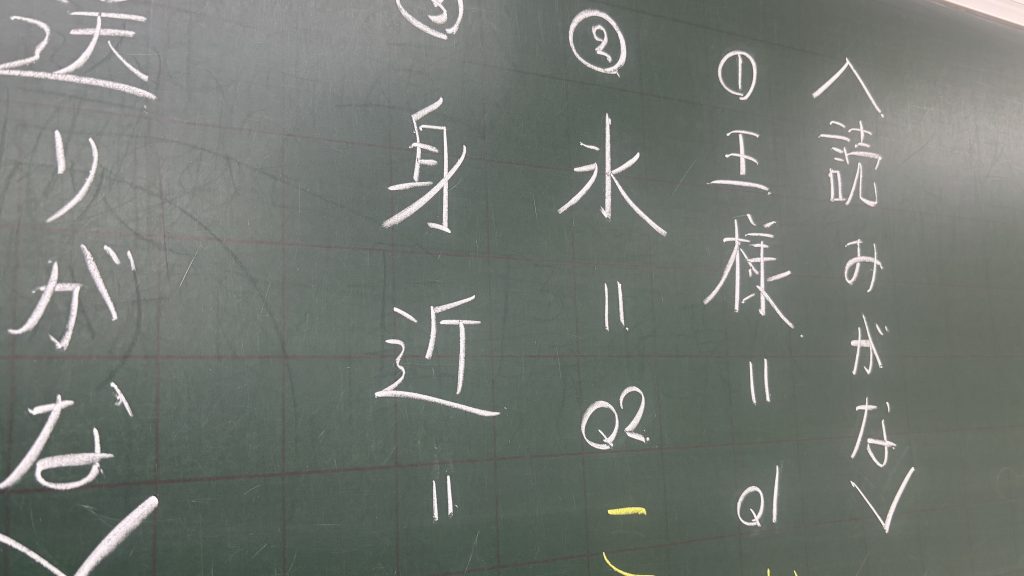 〈読みがな〉
①王様=Q1
②氷=Q2
③身近=
送りがな〉